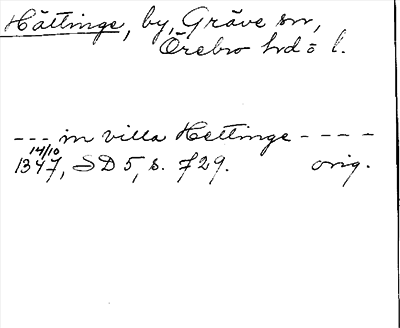 Hättinge, by, Gräve sn,
Örebro hd o l.
--- in villa Hettinge ----
14/10
1347, SD 5, s. 729. orig.